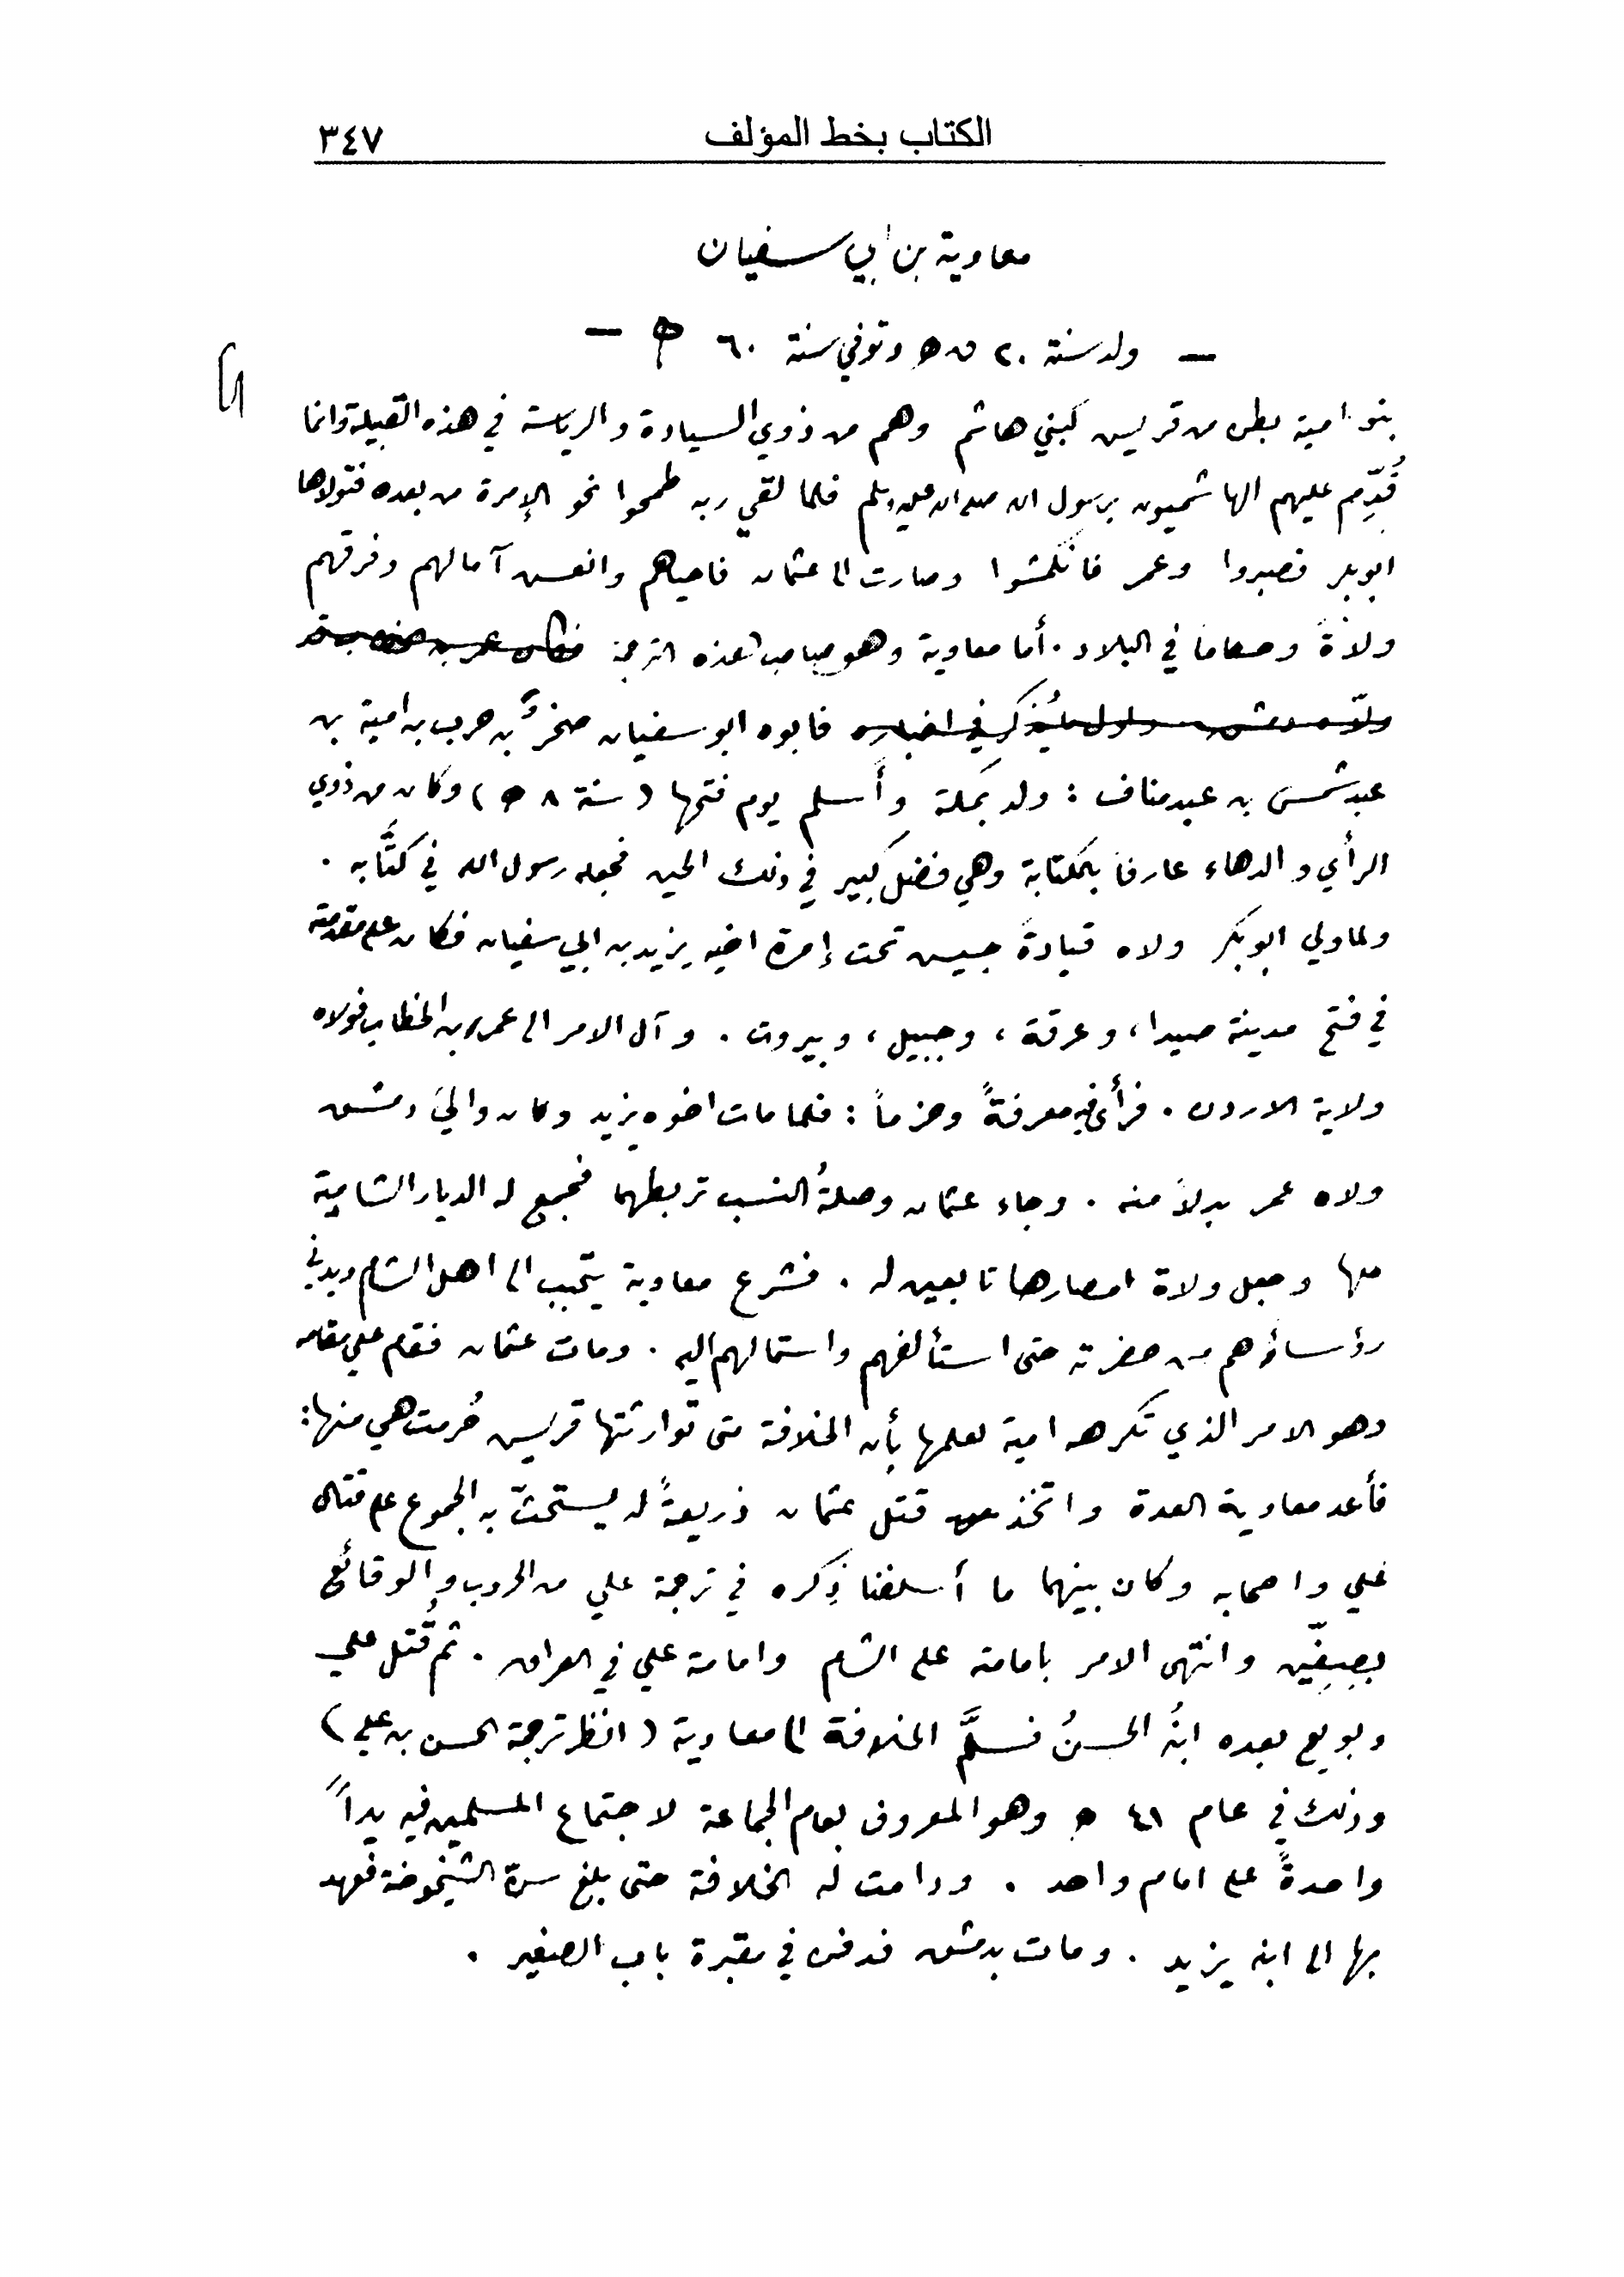 الكتاب بخط المؤلف ٣٤٧
معاوية بن ابي سفيان
— ولد سنة ٢٠ ق ه وتوفي سنة ٦٠ ه —
بنو امية بطن من قريش كبني هاشم وهم من ذوي السيادة والرياسة في هذه القبيلة وانما
قُدِّم عليهم الهاشميون برسول الله صلى الله عليه وسلم فلما لقي ربه طمحوا نحو الإمرة من بعده فتولاها
ابوبكر فصبروا وعمر فانكمشوا وصارت الى عثمان فاحياهم وانعش آمالهم وفرقهم
ولاةً وحكاماً في البلاد . أما معاوية وهو صاحب هذه الترجمة فكان عمر
ولّاه دمشق يُذكر في اخباره فابوه ابو سفيان صخرُ بن حرب بن امية بن
عبد شمس بن عبد مناف : ولد بمكة وأسلم يوم فتحها ( سنة ٨ ه ) وكان من ذوي
الرأي والدهاء عارفاً بالكتابة وهي فضل كبير في ذلك الحين فجعله رسول الله في كتَّابه .
ولما ولي ابوبكر ولاه قيادةَ جيش تحت إمرة اخيه يزيد بن ابي سفيان فكان على مقدمته
في فتح مدينة صيدا ، وعرقة ، وجبيل ، وبيروت . وآل الامر الى عمر بن الخطاب فولاه
ولاية الاردن . فرأى فيه معرفةً وحزماً : فلما مات اخوه يزيد وكان واليَ دمشق
ولاه عمر بدلاً منه . وجاء عثمان وصلةُ النسب تربطهما فجمع له الديار الشامية
كلها وجعل ولاة امصارها تابعين له . فشرع معاوية يتحبب الى اهل الشام ويدني
رؤساؤهم من حضرته حتى استألفهم واستمالهم اليه . ومات عثمان فقام علي مقامه
وهو الامر الذي تكرهه امية لعلمها بأن الخلافة متى توارثتها قريش حُرمت هي منها :
فأعد معاوية العدة واتخذ قتل عثمان ذريعةً له ليستحثّ به الجموع على قتال
علي واصحابه وكان بينهما ما أسلفنا ذِكره في ترجمة علي من الحروب والوقائع
بصِفِّين وانتهى الامر بامامته على الشام وامامة علي في العراق . ثم قُتل علي
وبويع بعده ابنُه الحسنُ فسلَّم الخلافة الى معاوية ( انظر ترجمة الحسن بن علي )
وذلك في عام ٤١ ه وهو المعروف بعام الجماعة لاجتماع المسلمين فيه يداً
واحدةً على امام واحد . ودامت له الخلافة حتى بلغ سنّ الشيخوخة فعهد
بها الى ابنه يزيد . ومات بدمشق فدفن في مقبرة باب الصغير .